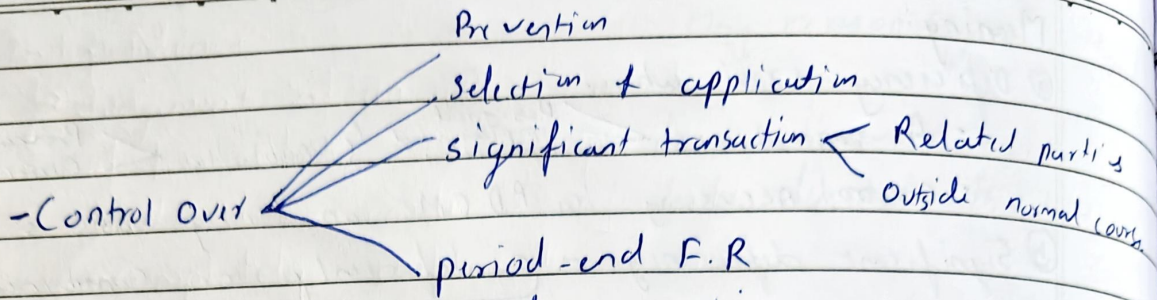 Prevention
selection & application
significant transaction < Related parties
Outside normal cours.
- Control Over
period-end F.R